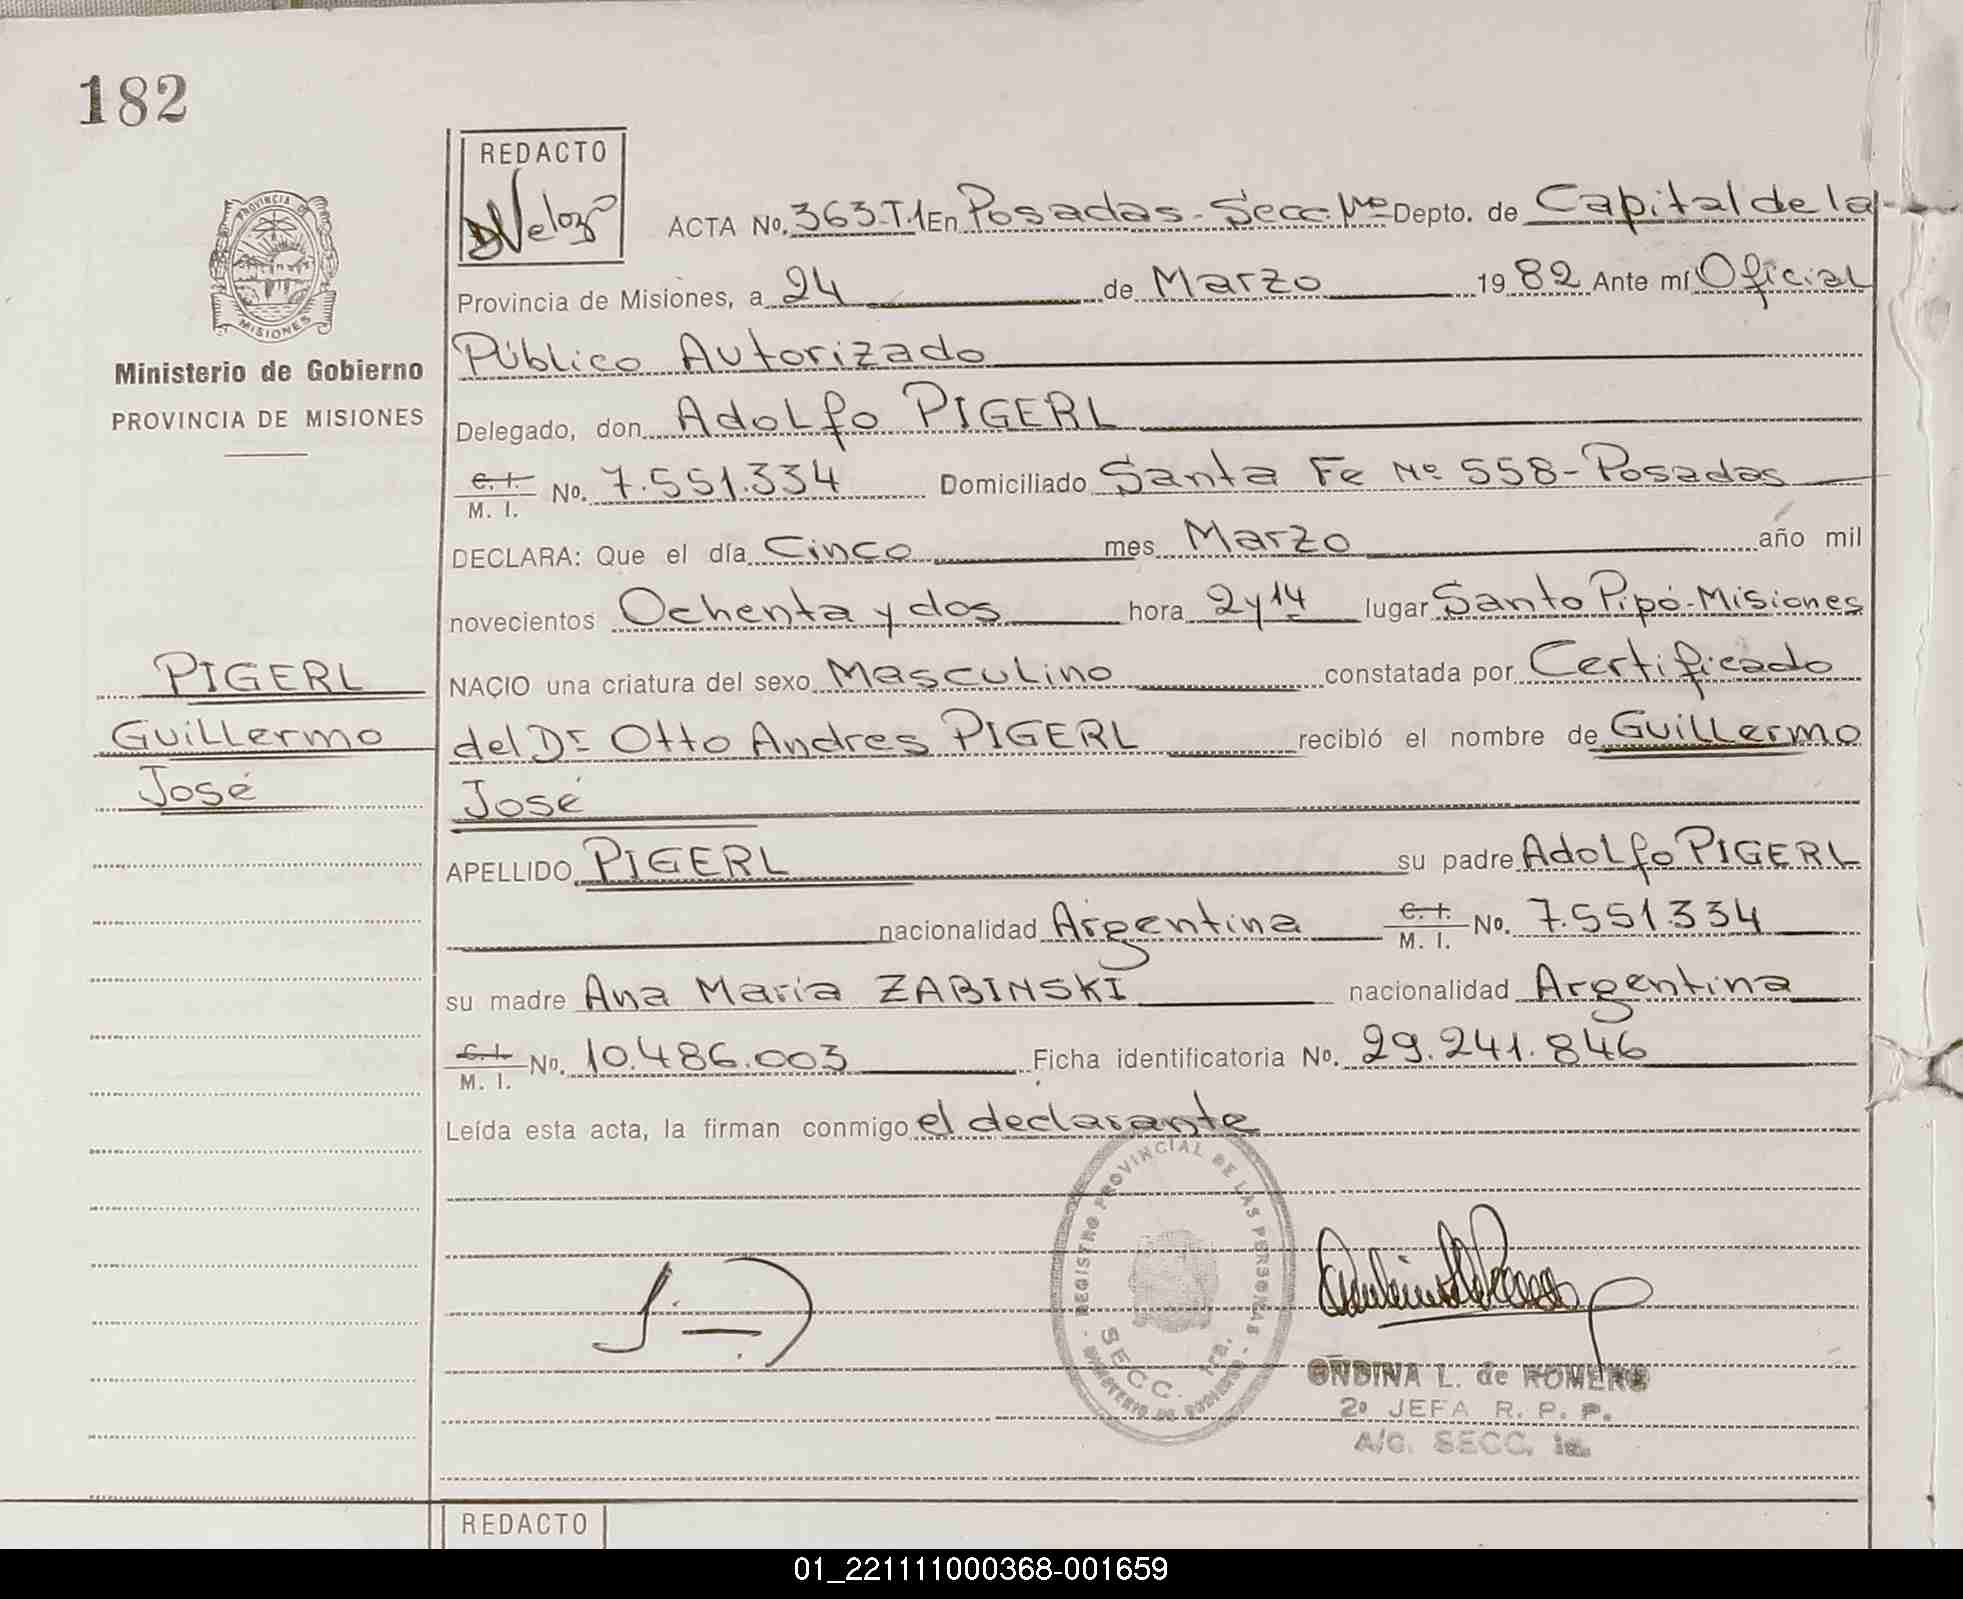 182
REDACTO
DVelozo
PROVINCIA DE
MISIONES
Ministerio de Gobierno
PROVINCIA DE MISIONES
ACTA No. 363-T.1 En Posadas-Secc. 1ra Depto. de Capital de la
Provincia de Misiones, a 24 de Marzo 1982 Ante mí Oficial
Público Autorizado
Delegado, don Adolfo PIGERL
C. I. M. I. No. 7.551.334 Domiciliado Santa Fe Nº 558-Posadas
DECLARA: Que el día Cinco mes Marzo año mil
novecientos Ochenta y dos hora 2 y 14 lugar Santo Pipó-Misiones
PIGERL
Guillermo
José
NACIO una criatura del sexo Masculino constatada por Certificado
del Dr Otto Andres PIGERL recibió el nombre de Guillermo
José
APELLIDO PIGERL su padre Adolfo PIGERL
nacionalidad Argentina C. I. M. I. No. 7.551.334
su madre Ana Maria ZABINSKI nacionalidad Argentina
C. I. M. I. No. 10.486.003 Ficha identificatoria No. 29.241.846
Leída esta acta, la firman conmigo el declarante
REGISTRO PROVINCIAL DE LAS PERSONAS
SECC. 1ra.
MINISTERIO DE GOBIERNO
ONDINA L. de ROMERO
2º JEFA R. P. P.
A/C. SECC. 1a.
REDACTO
01_221111000368-001659